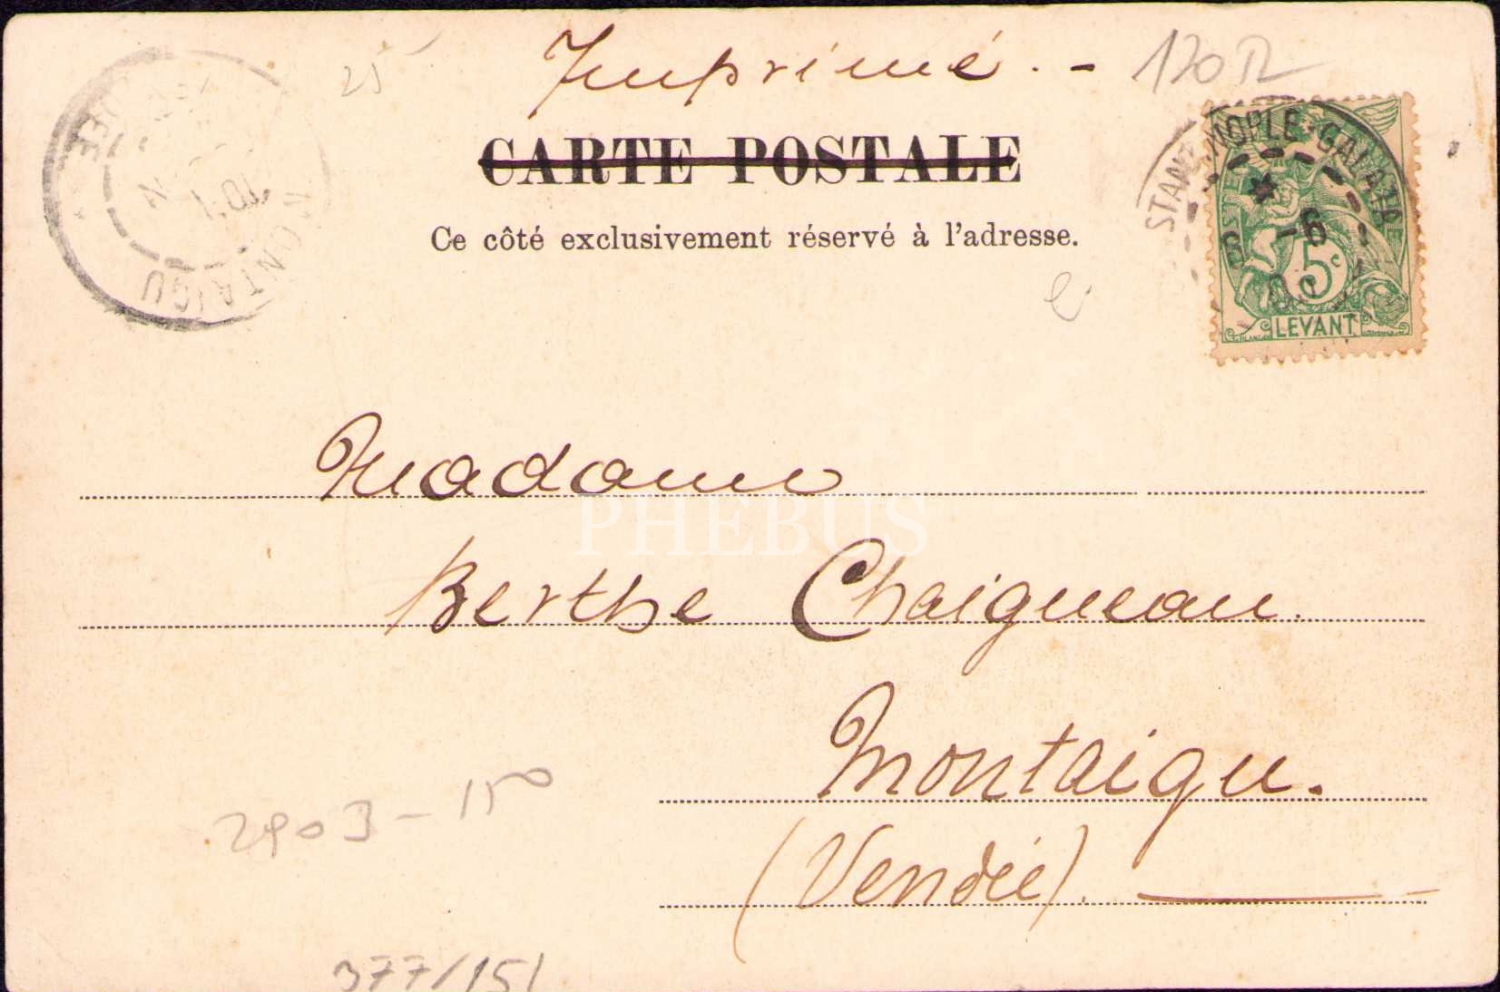 Imprimé. -
120
25
CARTE POSTALE
Ce côté exclusivement réservé à l'adresse.
MONTAIGU
STANT NOPLE-GALATA
-6
POSTES
5c
LEVANT
Madame
PHEBUS
Berthe Chaigneau.
Montaigu.
(Vendée).
2903-150
377/151